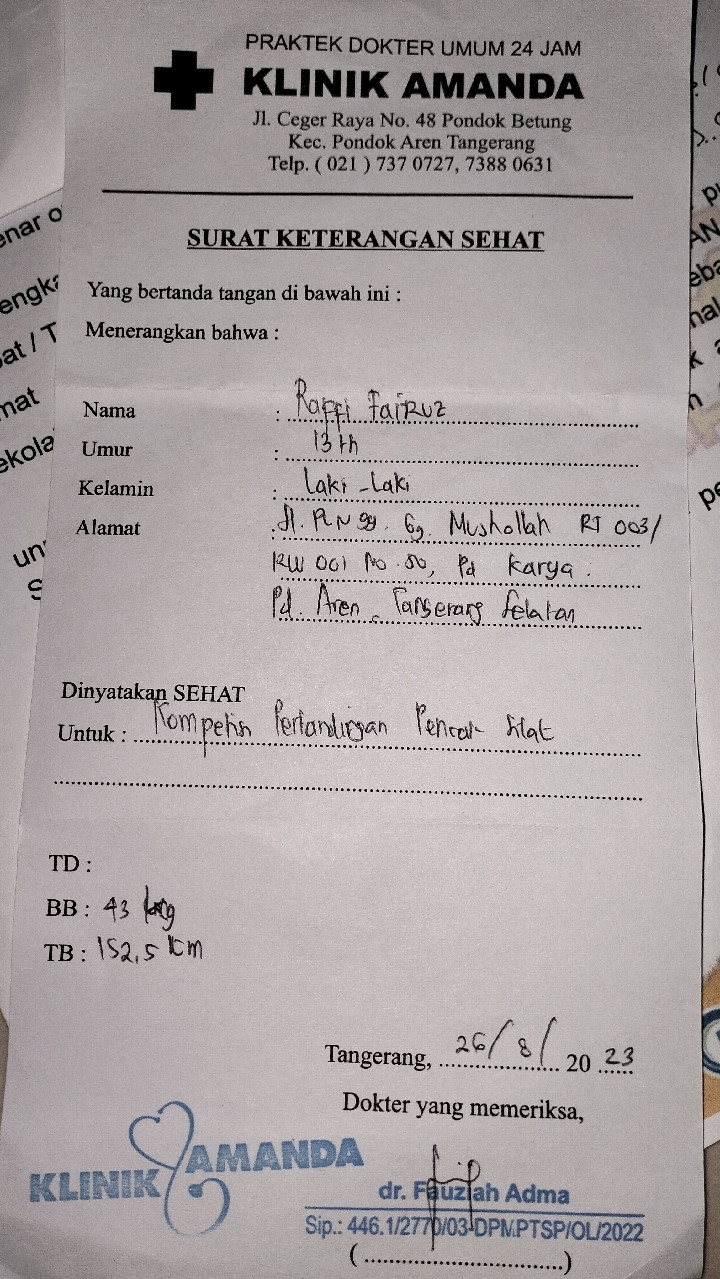 PRAKTEK DOKTER UMUM 24 JAM
KLINIK AMANDA
Jl. Ceger Raya No. 48 Pondok Betung
Kec. Pondok Aren Tangerang
Telp. ( 021 ) 737 0727, 7388 0631
SURAT KETERANGAN SEHAT
Yang bertanda tangan di bawah ini :
Menerangkan bahwa :
Nama : Raffi FaiRuz
Umur : 13 th
Kelamin : Laki-Laki
Alamat : Jl. PLN gg. Mushollah RT 003/
RW 001 No. 80, Pd karya.
Pd. Aren, Tangerang Selatan
Dinyatakan SEHAT
Untuk : Kompetisi Pertandingan Pencak Silat
TD :
BB : 43 kg
TB : 152,5 cm
Tangerang, 26/8/ 20 23
Dokter yang memeriksa,
KLINIK AMANDA
dr. Fauziah Adma
Sip.: 446.1/2770/03-DPMPTSP/OL/2022
(..............................)
enar o
engka
at / T
mat
ekola
un
S